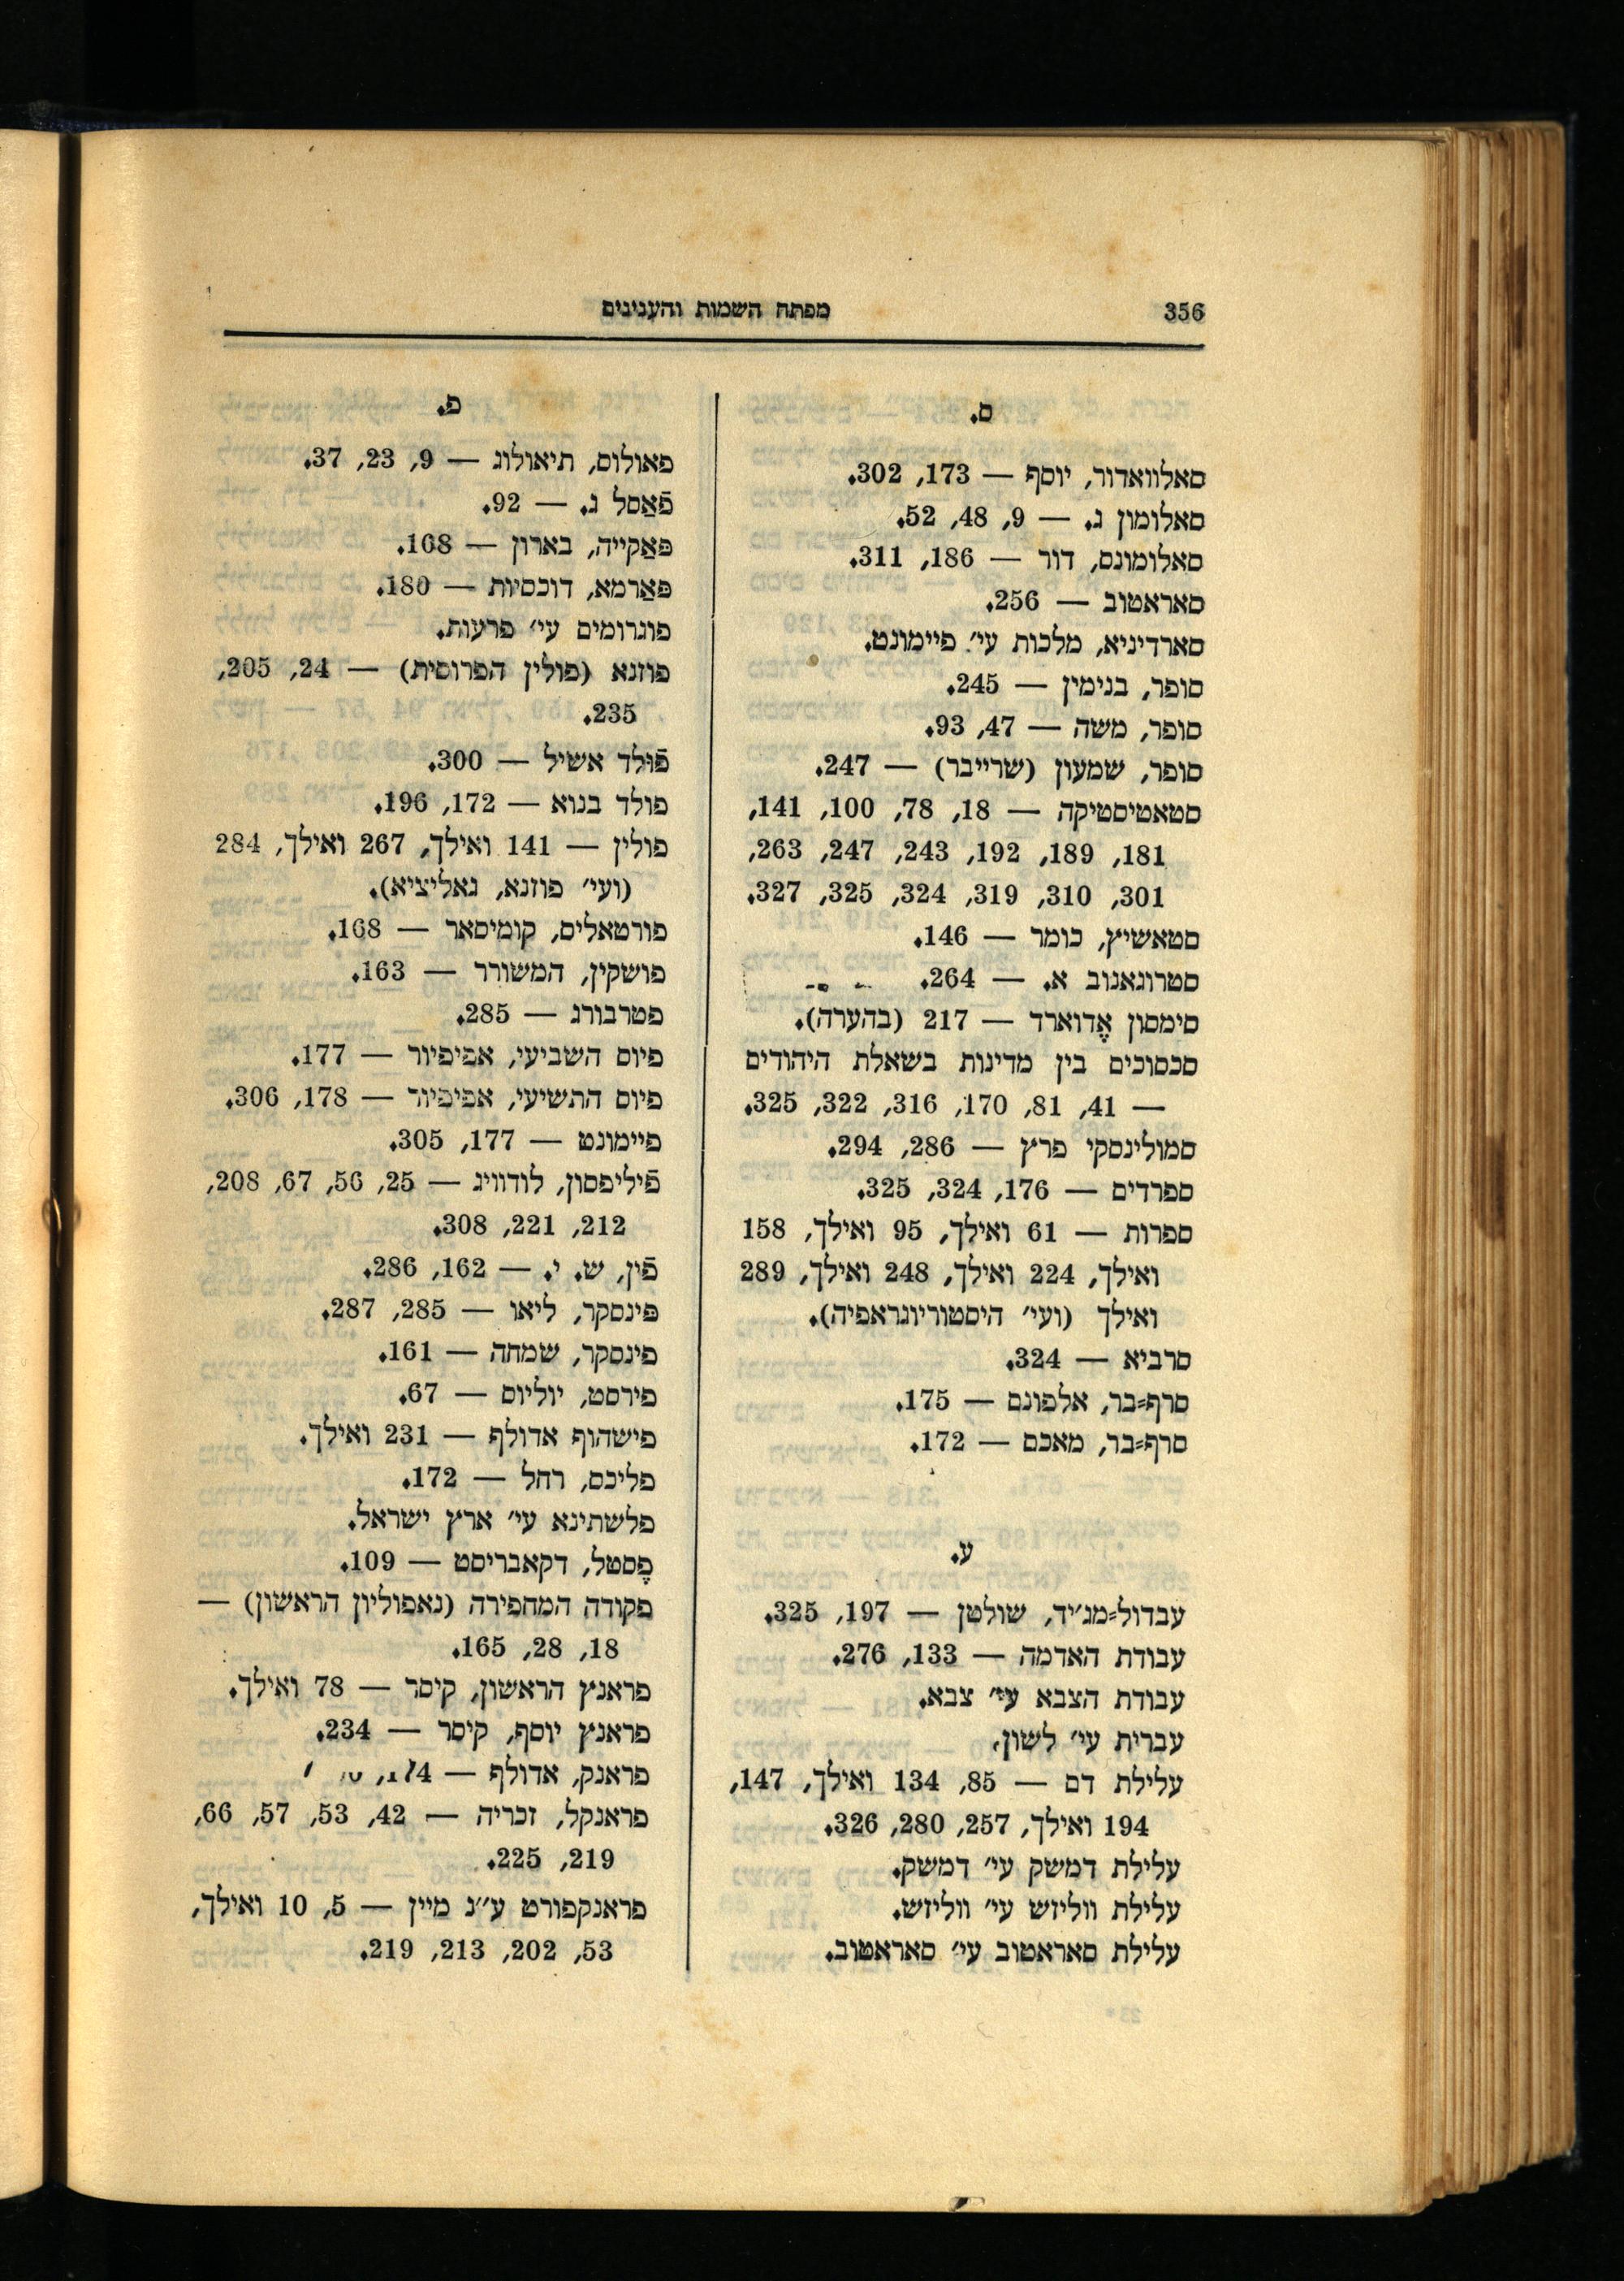 356
מפתח השמות והענינים
ס.
סאלוואדור, יוסף — 173, 302.
סאלומון ג. — 9, 48, 52.
סאלומונס, דור — 186, 311.
סאראטוב — 256.
סארדיניא, מלכות עי׳ פיימונט.
סופר, בנימין — 245.
סופר, משה — 47, 93.
סופר, שמעון (שרייבר) — 247.
סטאטיסטיקה — 18, 78, 100, 141,
181, 189, 192, 243, 247, 263,
301, 310, 319, 324, 325, 327.
סטאשיץ, כומר — 146.
סטרוגאנוב א. — 264.
סימסון אֶדוארד — 217 (בהערה).
סכסוכים בין מדינות בשאלת היהודים
— 41, 81, 170, 316, 322, 325.
סמולינסקי פרץ — 286, 294.
ספרדים — 176, 324, 325.
ספרות — 61 ואילך, 95 ואילך, 158
ואילך, 224 ואילך, 248 ואילך, 289
ואילך (ועי׳ היסטוריוגראפיה).
סרביא — 324.
סרף⸗בר, אלפונס — 175.
סרף⸗בר, מאכס — 172.
ע.
עבדול⸗מג׳יד, שולטן — 197, 325.
עבודת האדמה — 133, 276.
עבודת הצבא עי׳ צבא.
עברית עי׳ לשון.
עלילת דם — 85, 134 ואילך, 147,
194 ואילך, 257, 280, 326.
עלילת דמשק עי׳ דמשק.
עלילת ווליזש עי׳ ווליזש.
עלילת סאראטוב עי׳ סאראטוב.
פ.
פאולוס, תיאולוג — 9, 23, 37.
פֿאַסל ג. — 92.
פּאַקייה, בארון — 168.
פּאַרמא, דוכסיות — 180.
פוגרומים עי׳ פרעות.
פוזנא (פולין הפרוסית) — 24, 205,
235.
פֿוּלד אשיל — 300.
פולד בנוא — 172, 196.
פולין — 141 ואילך, 267 ואילך, 284
(ועי׳ פוזנא, גאליציא).
פורטאליס, קומיסאר — 168.
פושקין, המשורר — 163.
פטרבורג — 285.
פיוס השביעי, אפיפיור — 177.
פיוס התשיעי, אפיפיור — 178, 306.
פיימונט — 177, 305.
פֿיליפסון, לודוויג — 25, 56, 67, 208,
212, 221, 308.
פֿין, ש. י. — 162, 286.
פינסקר, ליאו — 285, 287.
פינסקר, שמחה — 161.
פירסט, יוליוס — 67.
פישהוף אדולף — 231 ואילך.
פליכס, רחל — 172.
פלשתינא עי׳ ארץ ישראל.
פֶּסטל, דקאבריסט — 109.
פקודה המחפירה (נאפוליון הראשון) —
18, 28, 165.
פראנץ הראשון, קיסר — 78 ואילך.
פראנץ יוסף, קיסר — 234.
פראנק, אדולף — 174,
פראנקל, זכריה — 42, 53, 57, 66,
219, 225.
פראנקפורט ע״נ מיין — 5, 10 ואילך,
53, 202, 213, 219.